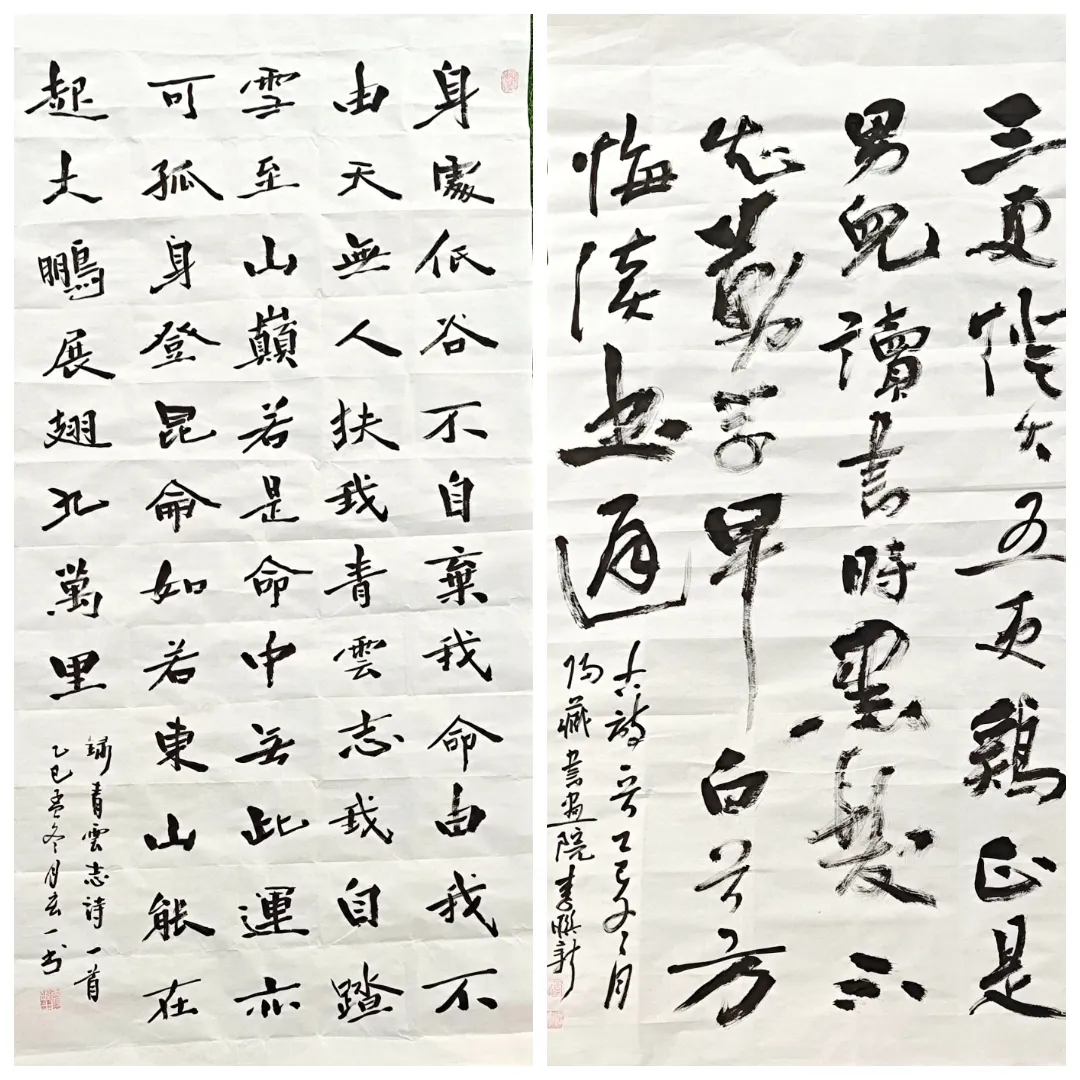 身處低谷不自棄我命由我不
由天無人扶我青雲志我自踏
雪至山巔若是命中無此運亦
可孤身登昆侖如若東山能在
起大鵬展翅九萬里
錄青雲志詩一首
乙巳孟冬月玄一书
三更燈火五更鷄正是
男兒讀書時黑髮不
知勤學早白首方
悔读書遲
古詩一首乙巳月
藏書画院李新